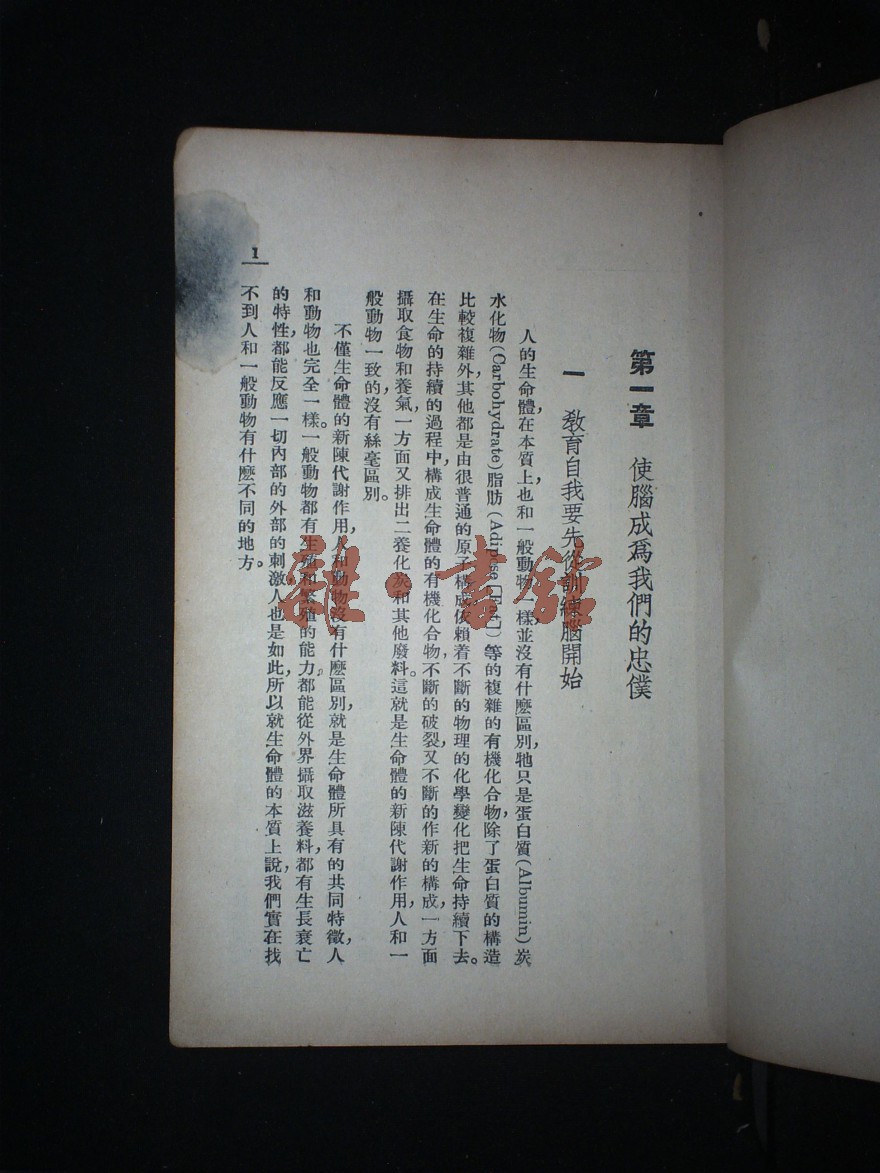 第一章　使腦成爲我們的忠僕
一　教育自我要先從訓練腦開始
人的生命體,在本質上,也和一般動物一樣,並沒有什麽區別,牠只是蛋白質(Albumin)炭
水化物(Carbohydrate)脂肪(Adipose [Fat])等的複雜的有機化合物,除了蛋白質的構造
比較複雜外,其他都是由很普通的原子構成,依賴着不斷的物理的化學變化把生命持續下去。
在生命的持續的過程中,構成生命體的有機化合物,不斷的破裂,又不斷的作新的構成,一方面
攝取食物和養氣,一方面又排出二養化炭和其他廢料。這就是生命體的新陳代謝作用,人和一
般動物一致的沒有絲毫區別。
不僅生命體的新陳代謝作用,人和動物沒有什麽區別,就是生命體所具有的共同特徵,人
和動物也完全一樣。一般動物都有生殖和繁殖的能力。都能從外界攝取滋養料,都有生長衰亡
的特性,都能反應一切內部的外部的刺激,人也是如此,所以就生命體的本質上說,我們實在找
不到人和一般動物有什麽不同的地方。
1
雜·書館